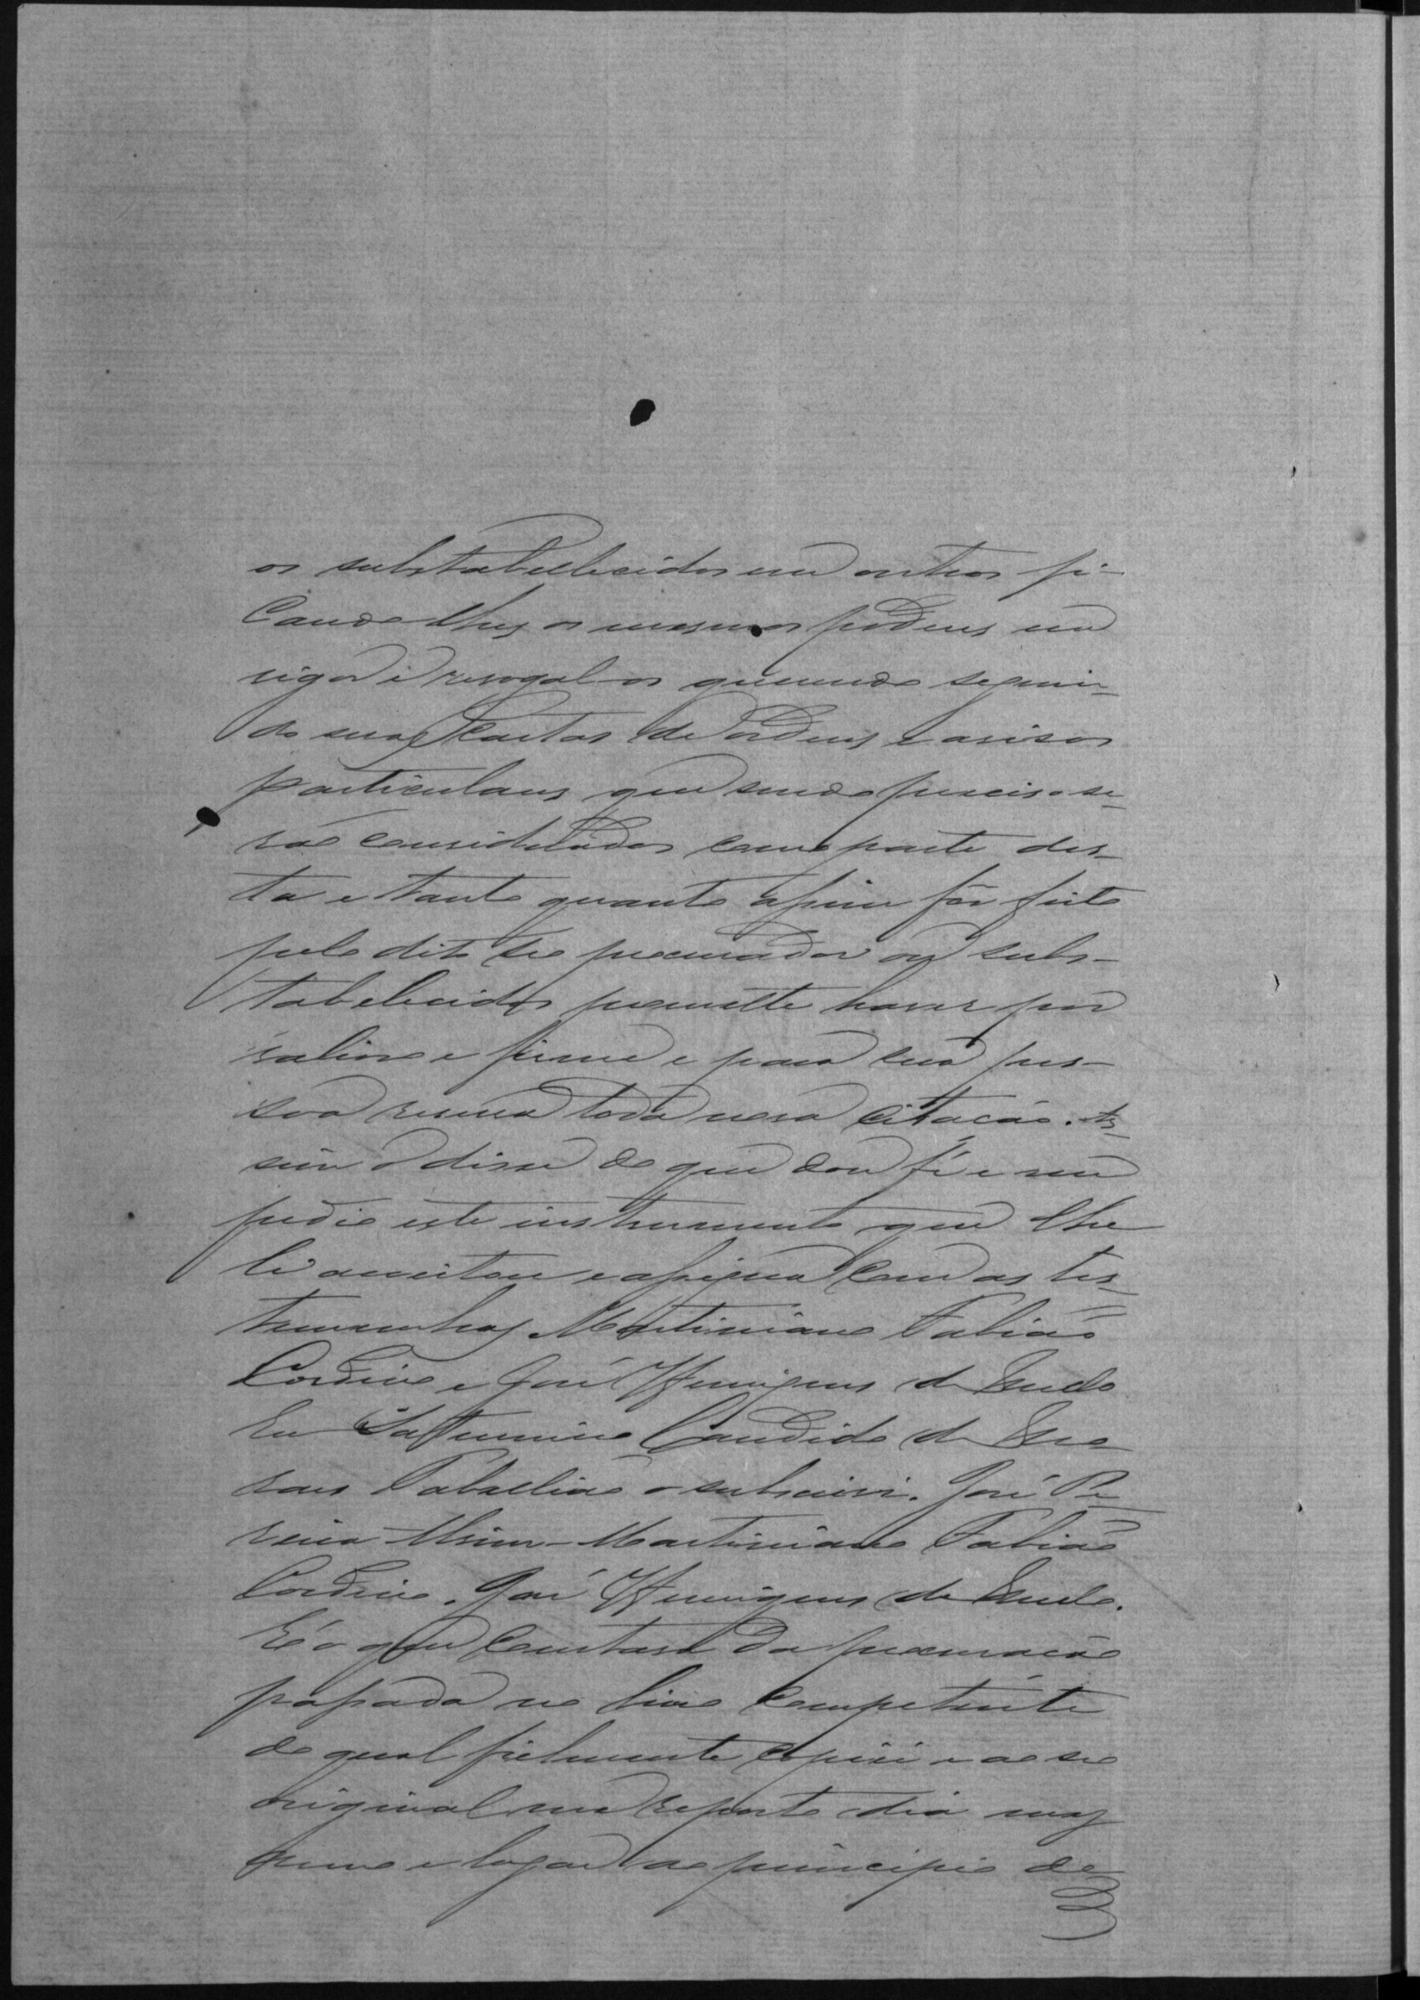 os substabellecidos em outros fi-
cando lhes os mesmos poderes em
vigor e revogal-os querendo seguin-
do suas Cartas de ordens e avisos
particulares que sendo preciso se-
rão considerados como parte des-
ta e tanto quanto assim fôr feito
pelo dito seo procurador ou subs-
tabelecidos promette haver por
valioso e firme e para sua pes-
soa reserva toda nova citação. As-
sim o disse de que dou fé e me
pedio este instrumento que lhe
li aceitou e assigna com as tes-
temunhas Martiniano Fabião
Cordeiro e José Henriques de
Eu Saturnino Candido de
Tabellião o subscrevi. José Pe-
reira Martiniano Fabião
Cordeiro. José Henriques de
É o que constava da procuração
passada no livro competente
do qual fielmente copiei e ao seo
original me reporto dia mez
anno e lugar ao principio de